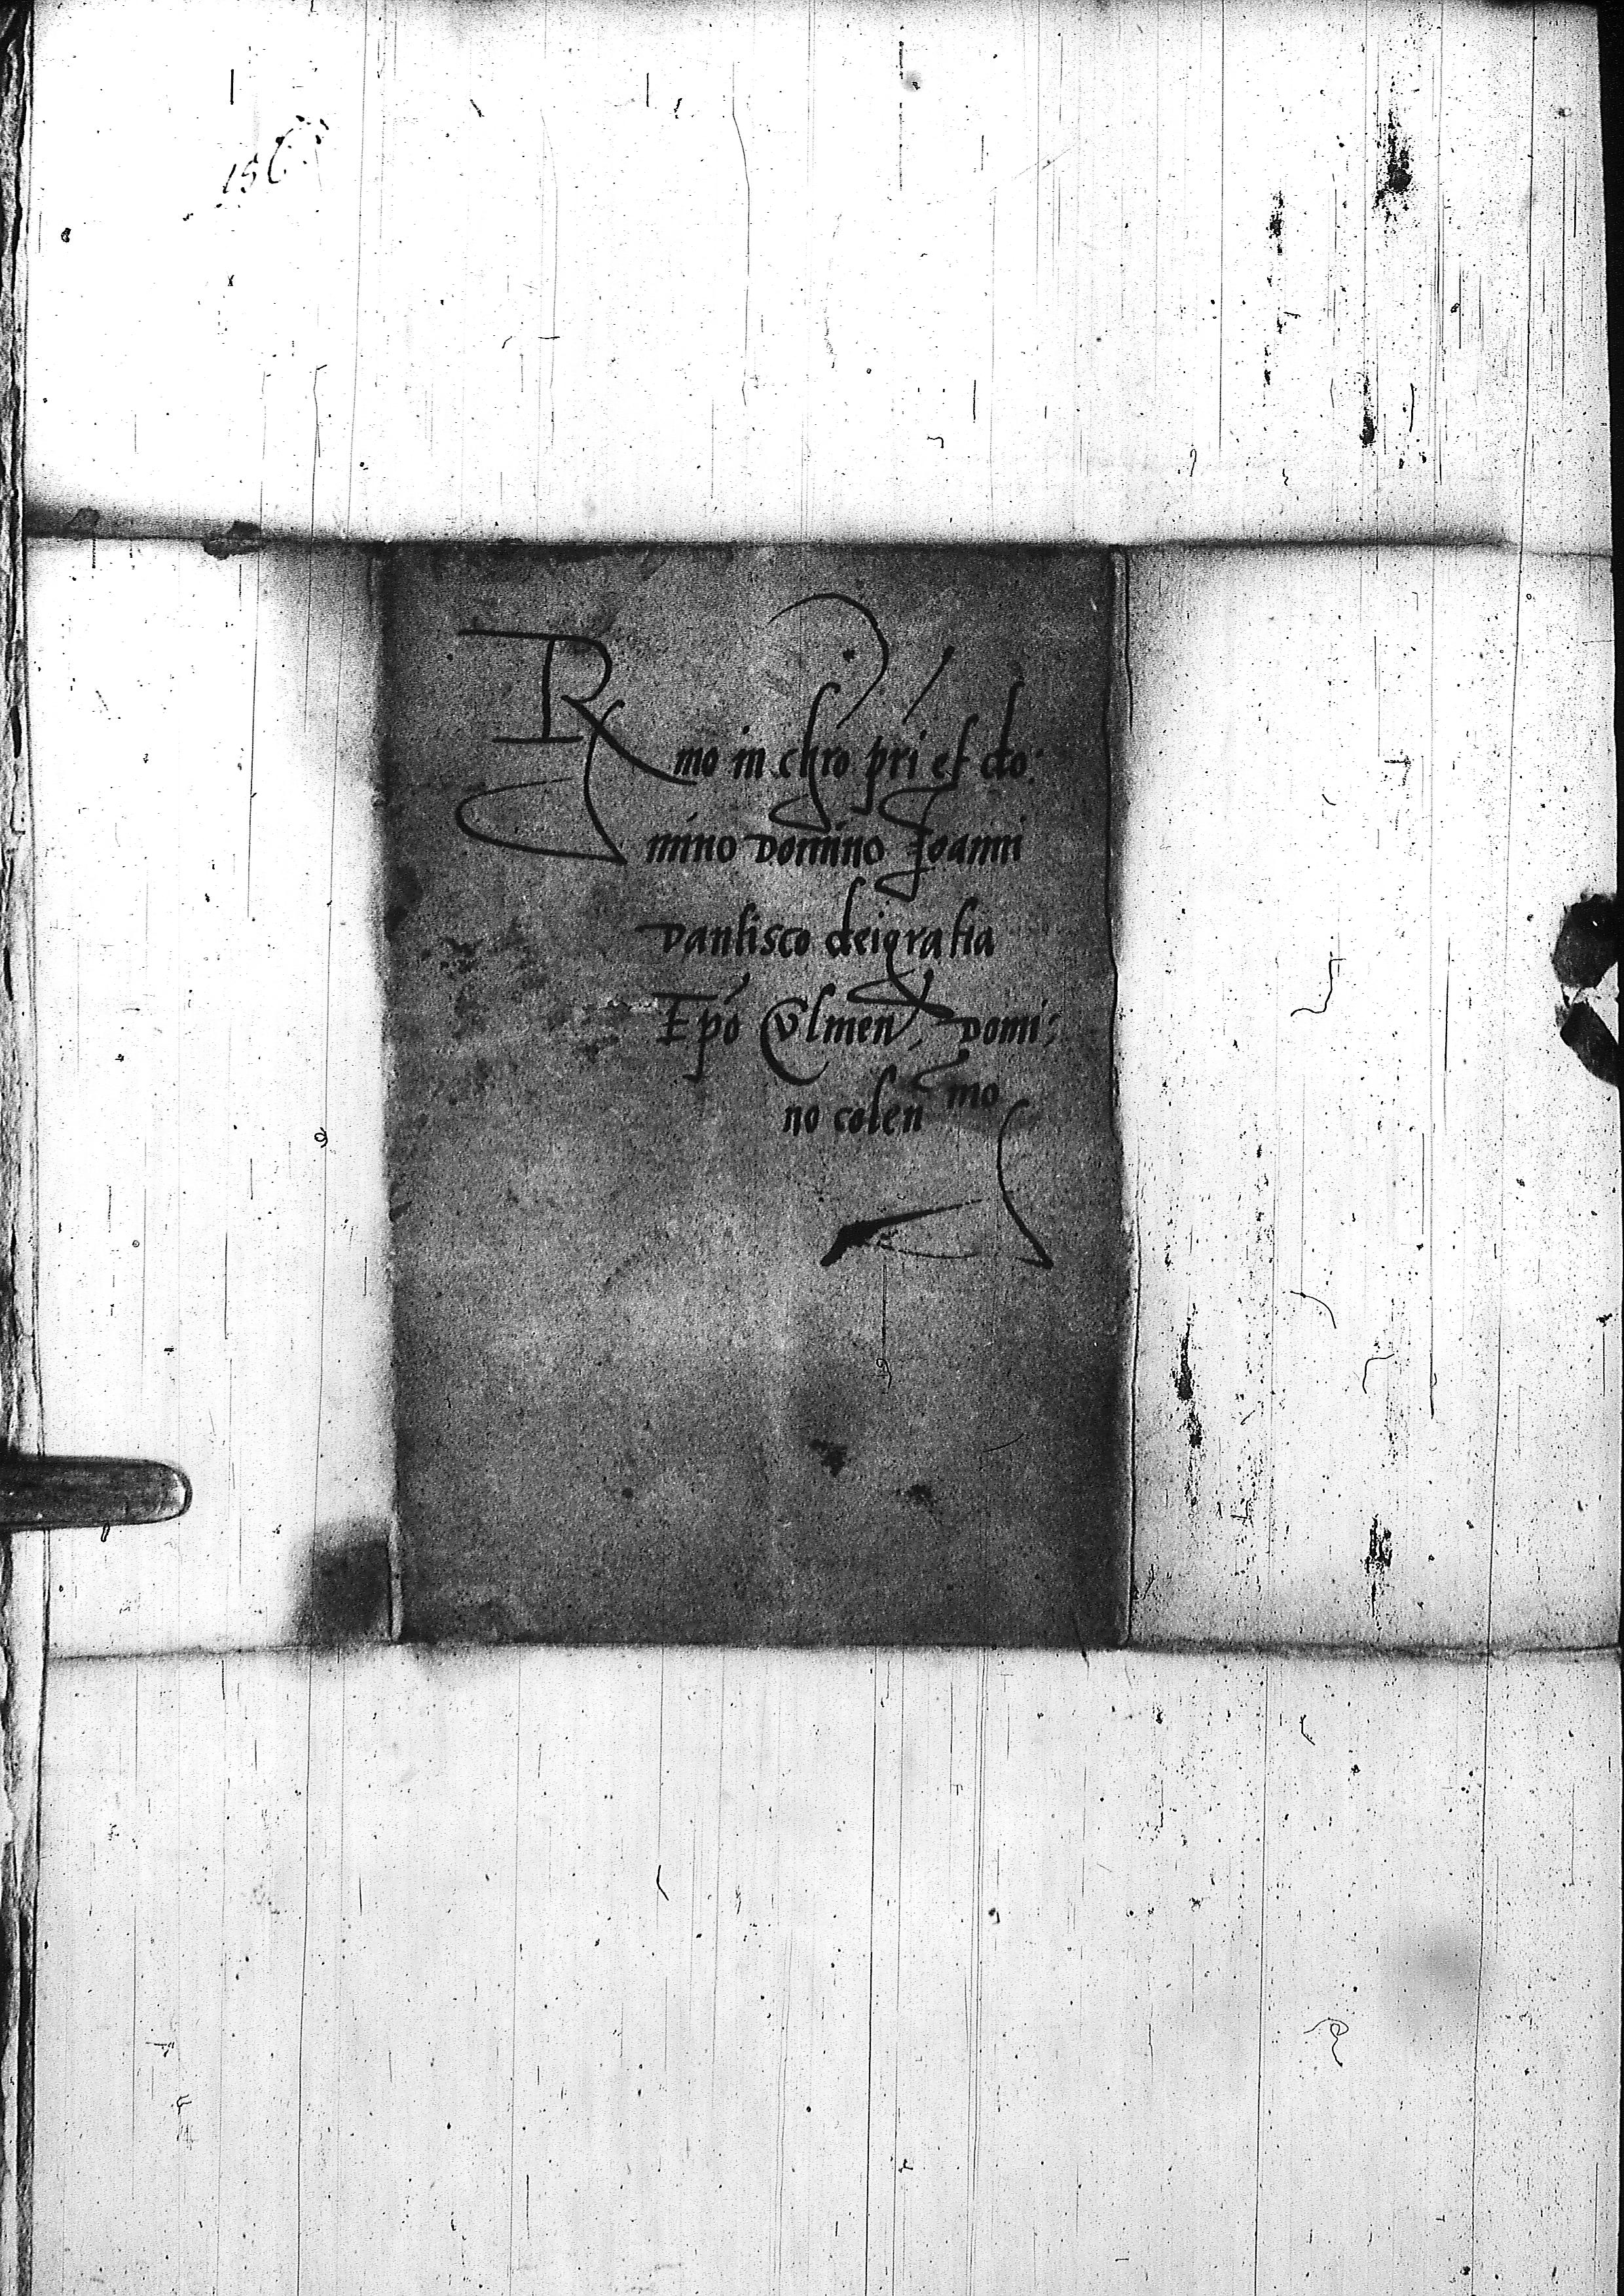 Rmo in chro pri et do:
mino Domino Joanni
Dantisco dei gratia
Epo Culmen, Domi:
no colen mo